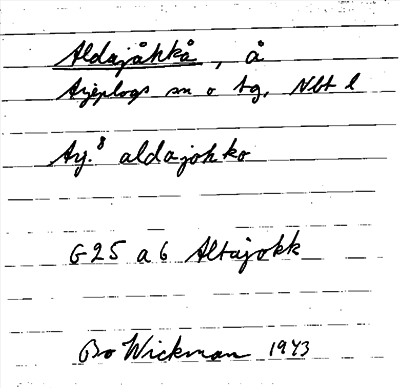 Aldajåhkå, å
Arjeplogs sn o tg, Nbt l
Arj.8 aldajohko
G25 a 6 Altajokk
Bo Wickman 1943